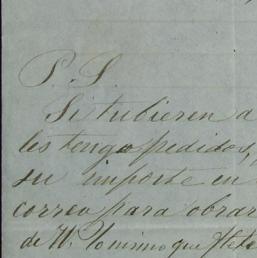 P. S.
Si tubieren a
les tengo pedidos,
su importe en
correo para obrar
de V. lo mismo que flete